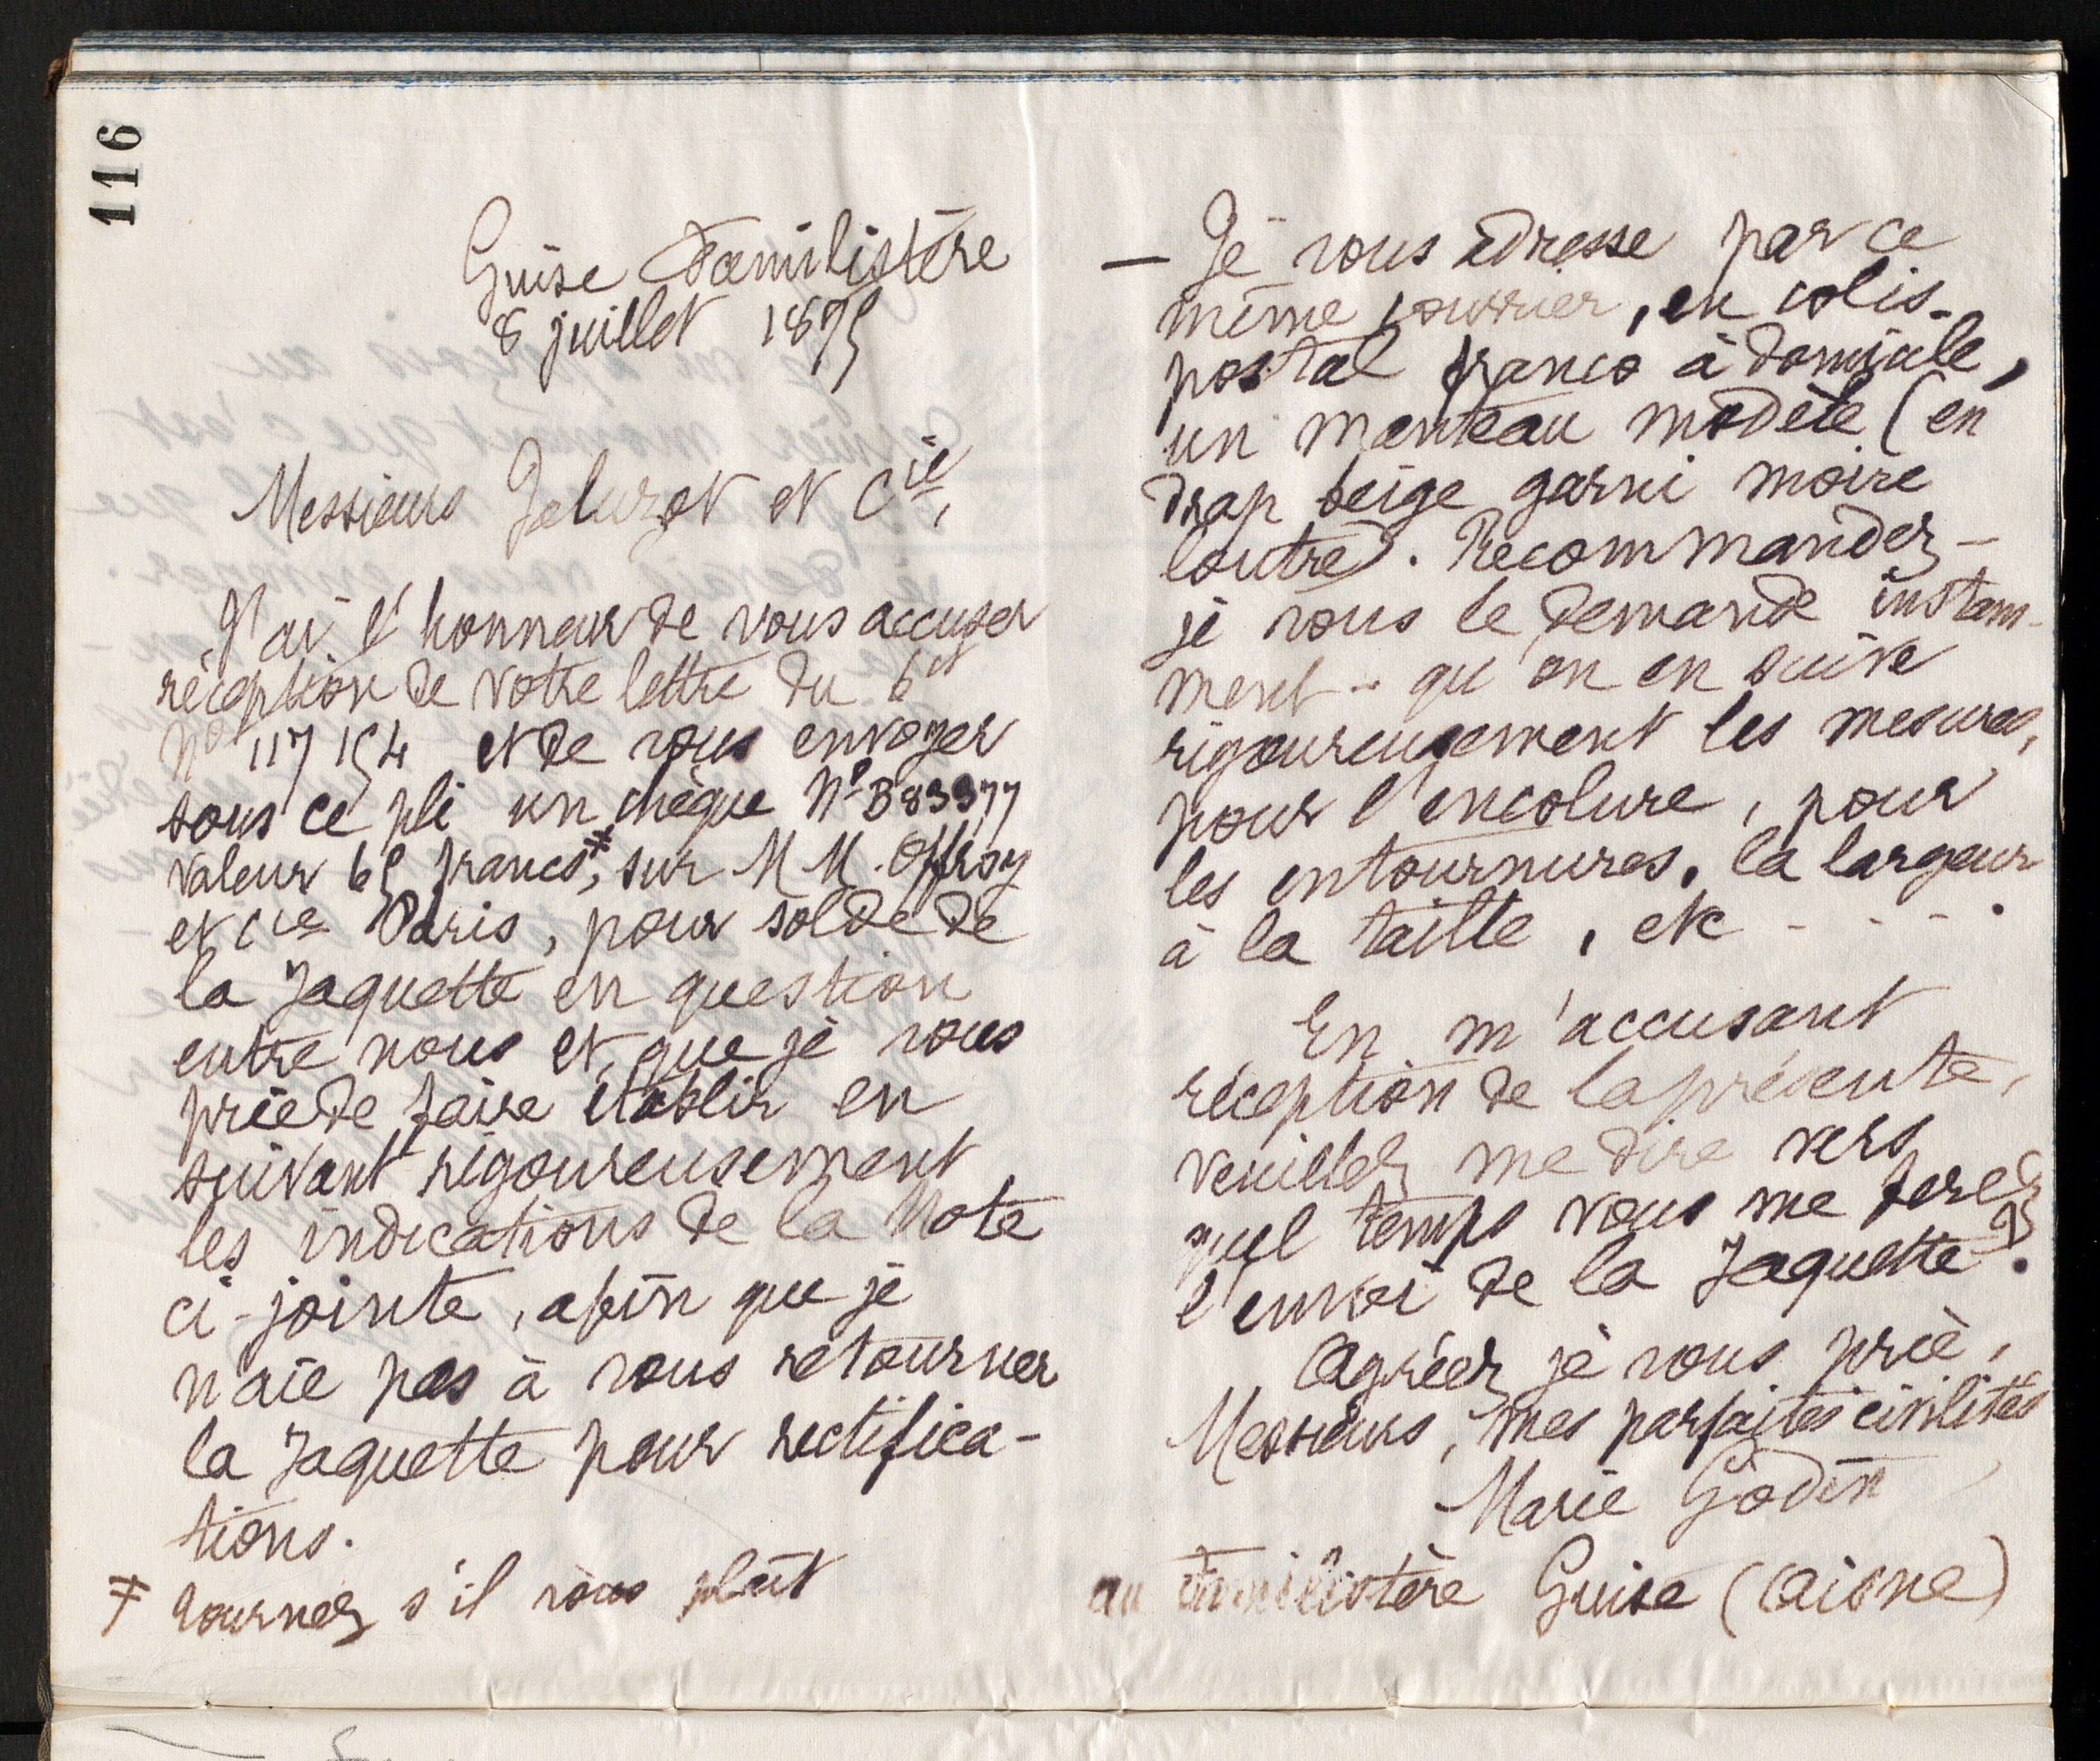 116
Guise Familistère
8 juillet 1895
Messieurs Jaluzot et Cie,
J'ai l'honneur de vous accuser
réception de votre lettre du 6 ct
No 117154 et de vous envoyer
sous ce pli un chèque No B83977
valeur 65 francs ≠, sur M M. Offroy
et Cie Paris, pour solde de
la Jaquette en question
entre nous et que je vous
prie de faire établir en
suivant rigoureusement
les indications de la Note
ci-jointe, afin que je
n'aie pas à vous retourner
la Jaquette pour rectifica-
tions.
≠ tournez s'il vous plaît
— Je vous adresse par ce
même courrier, en colis-
postal franco à domicile,
un manteau modèle (en
drap beige garni moire
loutre). Recommandez-
je vous le demande instam-
ment - qu'on en suive
rigoureusement les mesures,
pour l'encolure, pour
les entournures, la largeur
à la taille, etc - - - .
En m'accusant
réception de la présente,
veuillez me dire vers
quel temps vous me ferez
l'envoi de la Jaquette.
Agréez je vous prie,
Messieurs, mes parfaites civilités
Marie Godin
au Familistère Guise (Aisne)